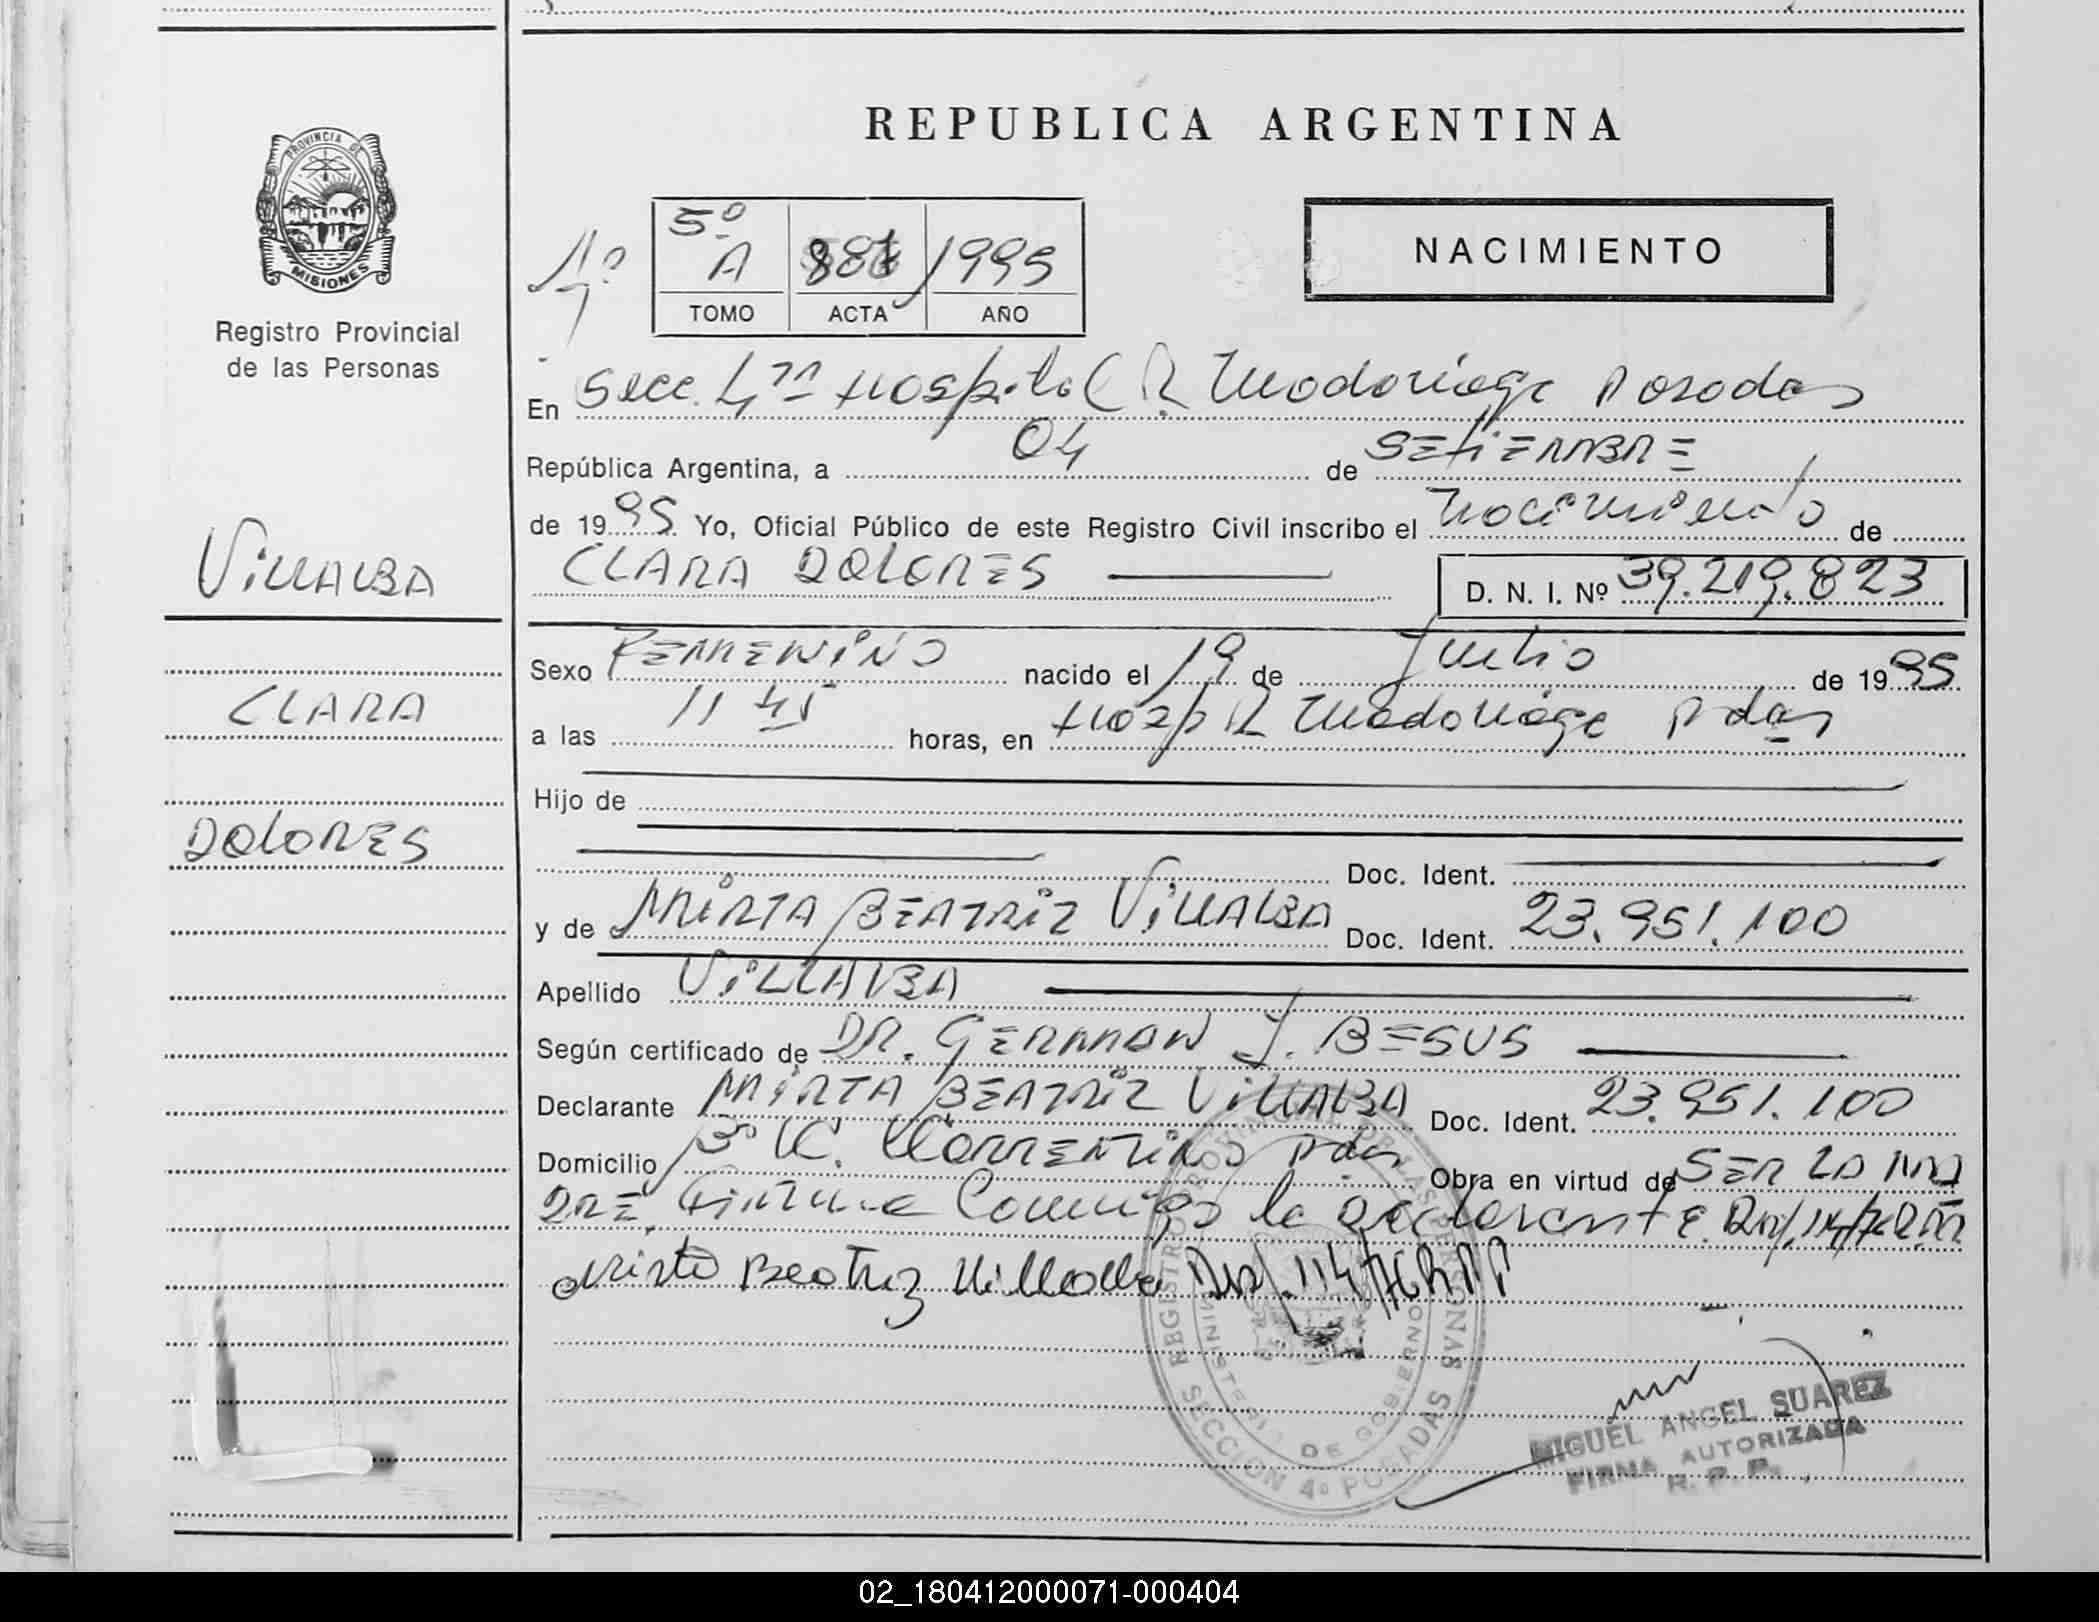 REPUBLICA ARGENTINA
PROVINCIA DE
MISIONES
Registro Provincial
de las Personas
VILLALBA
CLARA
DOLORES
4º
5º
A 887 1995
TOMO ACTA AÑO
NACIMIENTO
En Secc. 4ta Hospital R Madariaga Posadas
República Argentina, a 04 de SETIEMBRE
de 1995 Yo, Oficial Público de este Registro Civil inscribo el nacimiento de
CLARA DOLORES D. N. I. Nº 39.219.823
Sexo FEMENINO nacido el 19 de Julio de 1995
a las 11 45 horas, en Hosp R Madariaga Pdas
Hijo de
Doc. Ident.
y de MIRTA BEATRIZ VILLALBA Doc. Ident. 23.951.100
Apellido VILLALBA
Según certificado de DR. GERMAN J. BESUS
Declarante MIRTA BEATRIZ VILLALBA Doc. Ident. 23.951.100
Domicilio Bº CORRENTINO Pdas Obra en virtud de SER LA MA
DRE. Firma Conmigo la declarante.
Mirta Beatriz Villalba
REGISTRO PROVINCIAL DE LAS PERSONAS
MINISTERIO DE GOBIERNO
SECCION 4º POSADAS
MIGUEL ANGEL SUAREZ
FIRMA AUTORIZADA
R. P. P.
02_180412000071-000404